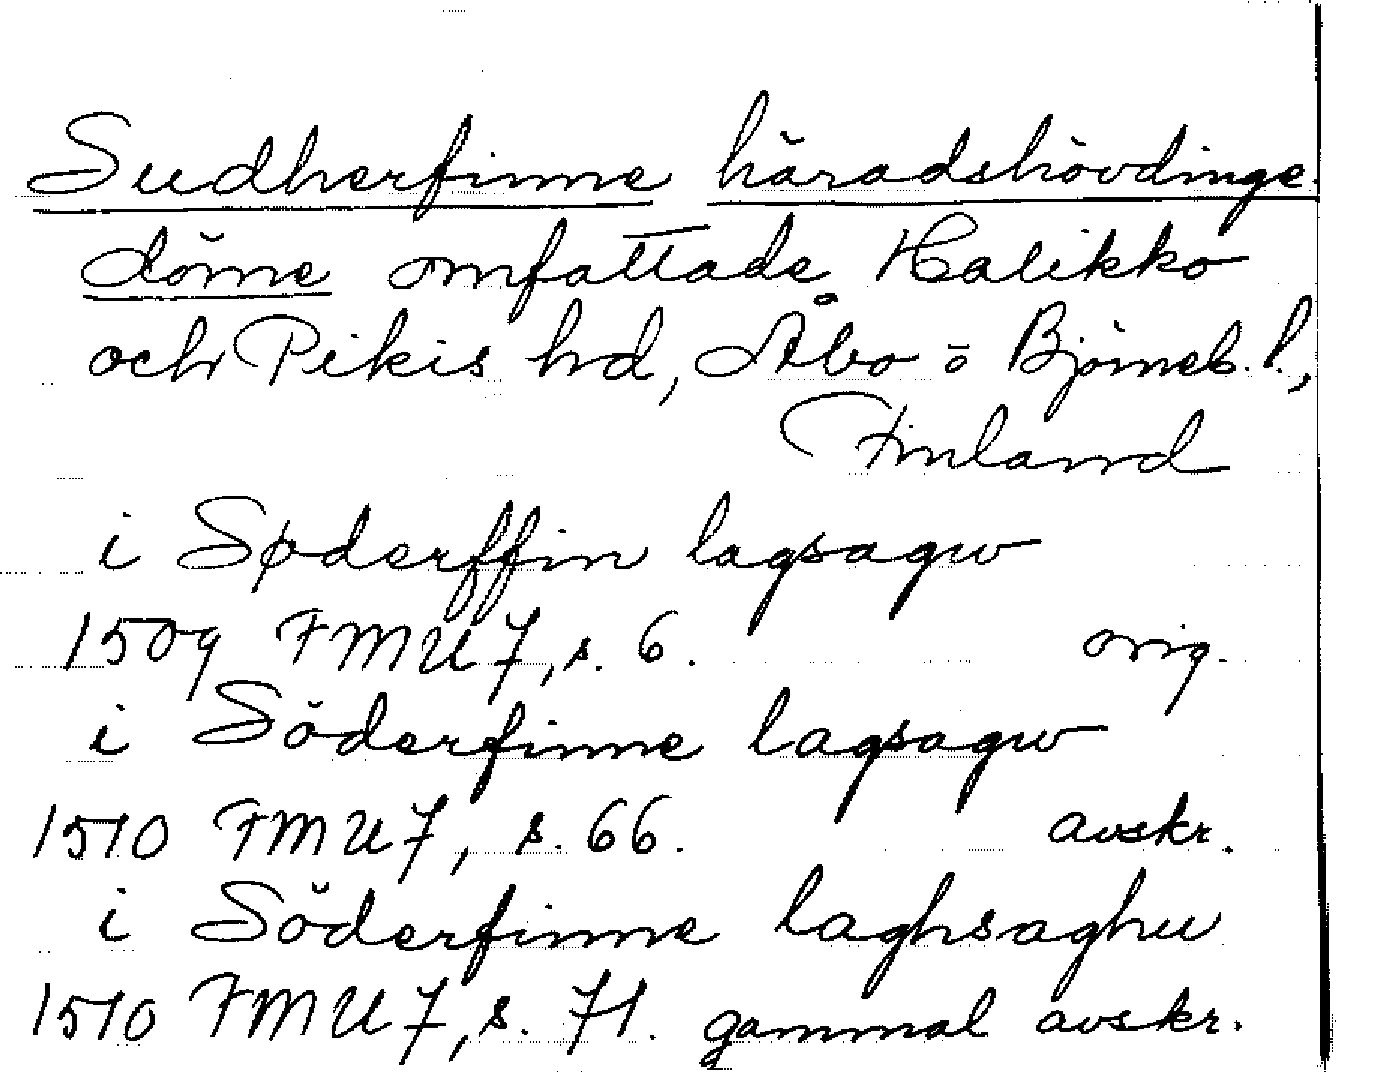 Sudherfinne häradshövdinge-
döme omfattade Halikko
och Pikis hd, Åbo o Björneb. l.,
Finland
i Søderffin lagsagw
1509 FMU 7, s. 6. orig.
i Söderfinne lagsagw
1510 FMU 7, s. 66. avskr.
i Söderfinne laghsaghw
1510 FMU 7, s. 71. gammal avskr.